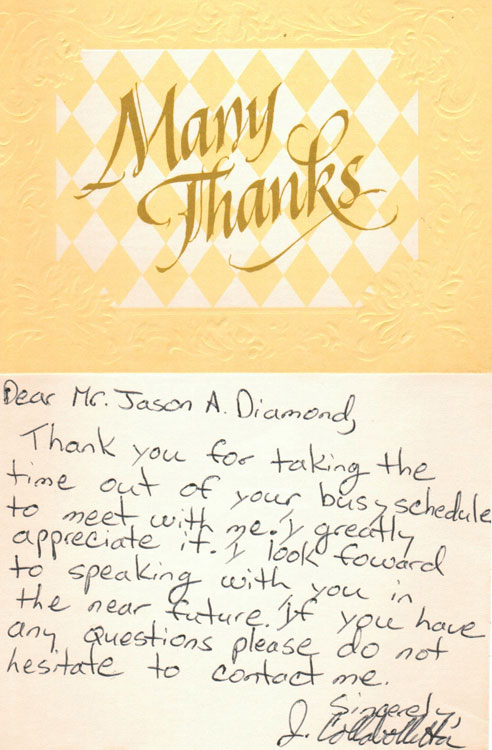 Many
Thanks
Dear Mr. Jason A. Diamond,
Thank you for taking the
time out of your busy schedule
to meet with me. I greatly
appreciate it. I look foward
to speaking with you in
the near future. If you have
any questions please do not
hesitate to contact me.
Sincerely,
J.